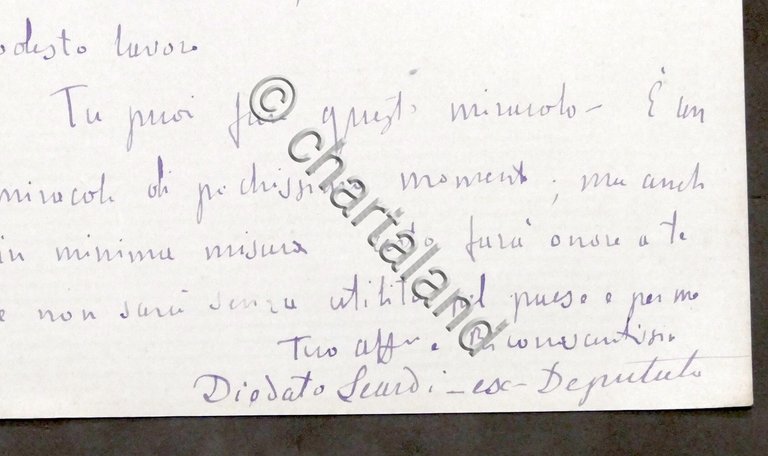 modesto lavoro
Tu puoi fare questo miracolo - È un
miracolo di pochissimi momenti, ma anche
in minima misura farà onore a te
e non sarà senza utilità pel paese e per me
Tuo aff. e Riconoscentissi
Diodato - ex - Deputato
© chartaland